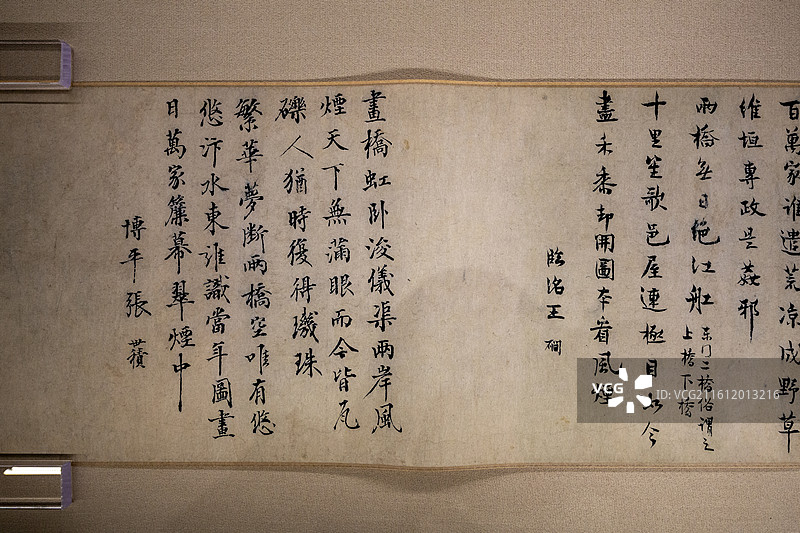 百萬家誰遣荒凉成野草
維垣專政是姦邪
兩橋無日絕江舡
東門二橋俗謂之
上橋下橋
十里笙歌邑屋連極目如今
盡禾黍却開圖本看風煙
臨洺王磵
畫橋虹臥浚儀渠兩岸風
煙天下無滿眼而今皆瓦
礫人猶時復得璣珠
繁華夢斷兩橋空唯有悠
悠汴水東誰識當年圖畫
日萬家簾幕翠煙中
博平張世積
VCG
VCG211612013216